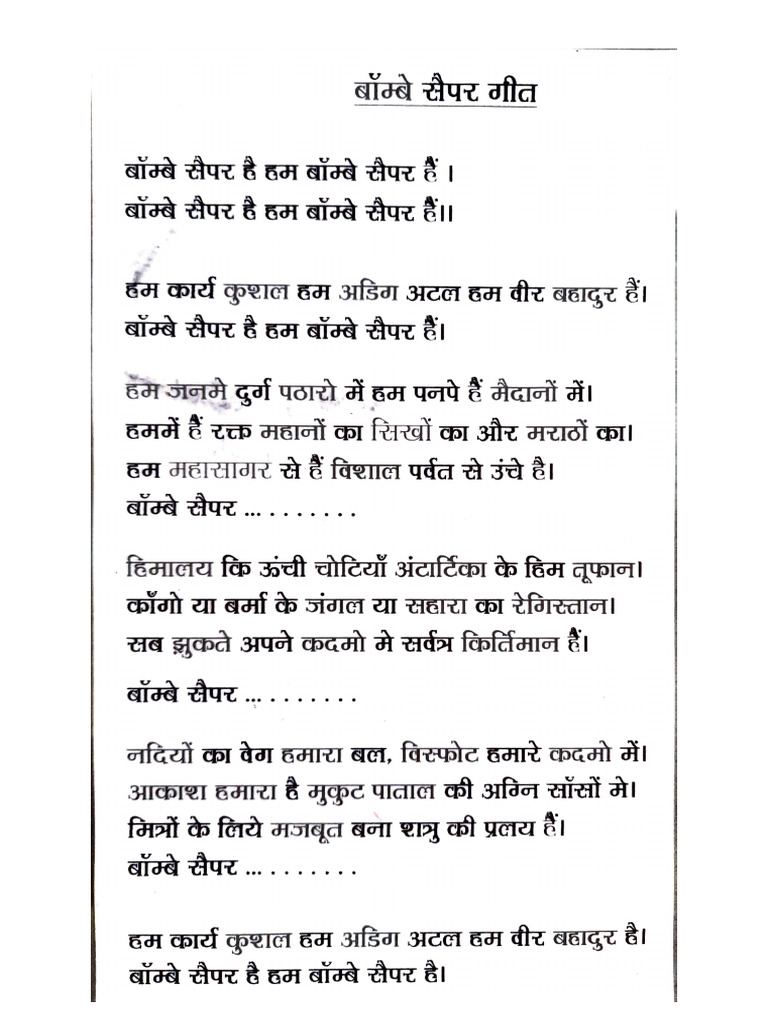 बॉम्बे सैपर गीत
बॉम्बे सैपर है हम बॉम्बे सैपर हैं ।
बॉम्बे सैपर है हम बॉम्बे सैपर हैं।।
हम कार्य कुशल हम अडिग अटल हम वीर बहादुर हैं।
बॉम्बे सैपर है हम बॉम्बे सैपर हैं।
हम जनमे दुर्ग पठारो में हम पनपे हैं मैदानों में।
हममें हैं रक्त महानों का सिखों का और मराठों का।
हम महासागर से हैं विशाल पर्वत से उंचे है।
बॉम्बे सैपर ... . . . . . . . .
हिमालय कि ऊंची चोटियाँ अंटार्टिका के हिम तूफान।
काँगो या बर्मा के जंगल या सहारा का रेगिस्तान।
सब झुकते अपने कदमो मे सर्वत्र किर्तिमान हैं।
बॉम्बे सैपर ... . . . . . . . .
नदियों का वेग हमारा बल, विस्फोट हमारे कदमो में।
आकाश हमारा है मुकुट पाताल की अग्नि साँसों मे।
मित्रों के लिये मजबूत बना शत्रु की प्रलय हैं।
बॉम्बे सैपर ... . . . . . . . .
हम कार्य कुशल हम अडिग अटल हम वीर बहादुर है।
बॉम्बे सैपर है हम बॉम्बे सैपर है।